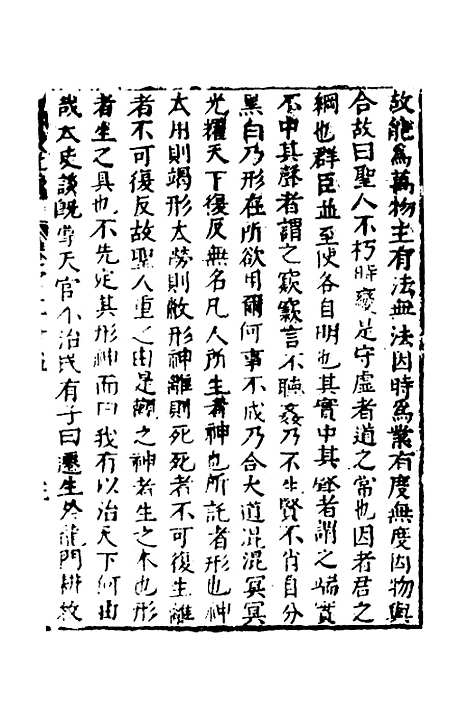 故能爲萬物主有法無法因時爲業有度無度因物與
合故曰聖人不朽時變是守虛者道之常也因者君之
綱也群臣並至使各自明也其實中其聲者謂之端實
不中其聲者謂之窾窾言不聽姦乃不生賢不肖自分
黑白乃形在所欲用爾何事不成乃合大道混混冥冥
光耀天下復反無名凡人所生者神也所託者形也神
太用則竭形太勞則敝形神離則死死者不可復生離
者不可復反故聖人重之由是觀之神者生之本也形
者生之具也不先定其形神而曰我有以治天下何由
哉太史談旣掌天官不治民有子曰遷生於龍門耕牧